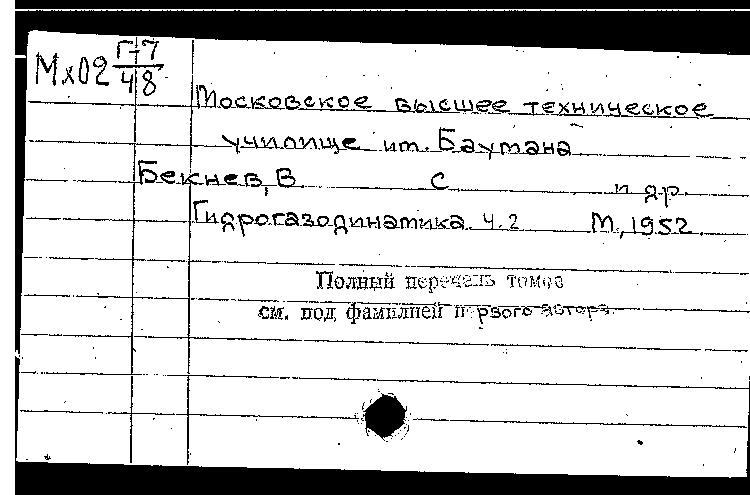 Мх02 Г-7/48
Московское высшее техническое
училище им. Баумана
Бекнев, В. С и др.
Гидрогазодинамика. ч. 2 М., 1952.
Полный перечень томов
см. под фамилией первого автора.